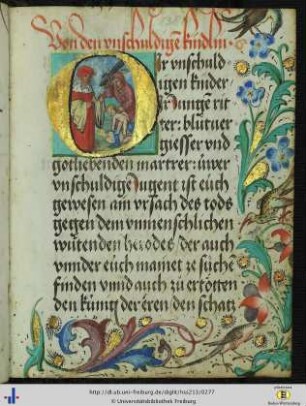 Von den vnschuldigē kindlin.
Ir vnschuld
igen kinder
vnd iunge rit
ter: blůtuer
giesser vnd
gotliebenden martrer: iwer
vnschuldige iugent ist eüch
gewesen ain vrsach des tods
gegen dem vnmenschlichen
wütenden herodes der auch
vnnder eüch mainet ze suchē
finden vnnd auch zů ertötten
den künig der eren den schatz
http://dl.ub.uni-freiburg.de/diglit/hs
© Universitätsbibliothek Freiburg